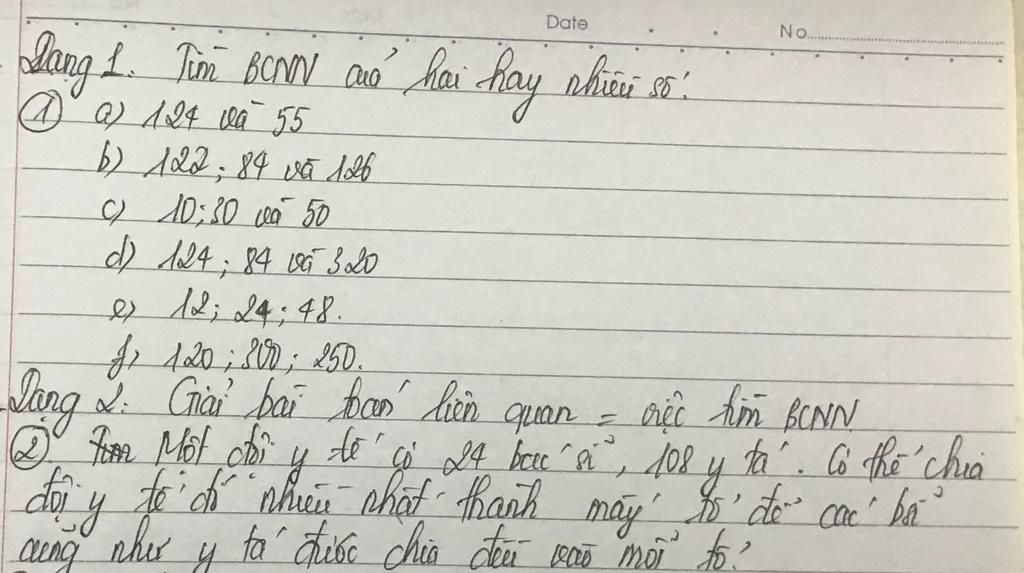 Date No
Dạng 1. Tìm BCNN của hai hay nhiều số:
① a) 124 và 55
b) 122; 84 và 126
c) 10; 30 và 50
d) 124; 84 và 320
e) 12; 24; 48.
f) 120; 300; 250.
Dạng 2: Giải bài toán liên quan = việc tìm BCNN
② Tìm Một đội y tế có 24 bác sĩ, 108 y tá. Có thể chia
đội y tế đó nhiều nhất thành mấy tổ để các bá
cũng như y tá được chia đều vào mỗi tổ?